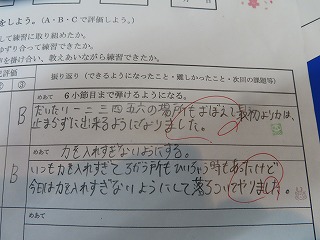 をしよう。(A・B・Cで評価しよう。)
して練習に取り組めたか。
ずり合って練習できたか。
を掛け合い、教えあいながら練習できたか。
己評価
② ③
振り返り(できるようになったこと・難しかったこと・次回の課題等)
めあて 6小節目まで弾けるようになる。
B
だいたい一二三四五六の場所もおぼえて最初よりかは、
止まらずに出来るようになりました。
めあて 力を入れすぎないようにする。
B
いつも力を入れすぎてちがう所もひいちゃう時もあったけど
今日は力を入れすぎないようにして落ちついてやりました。
めあて